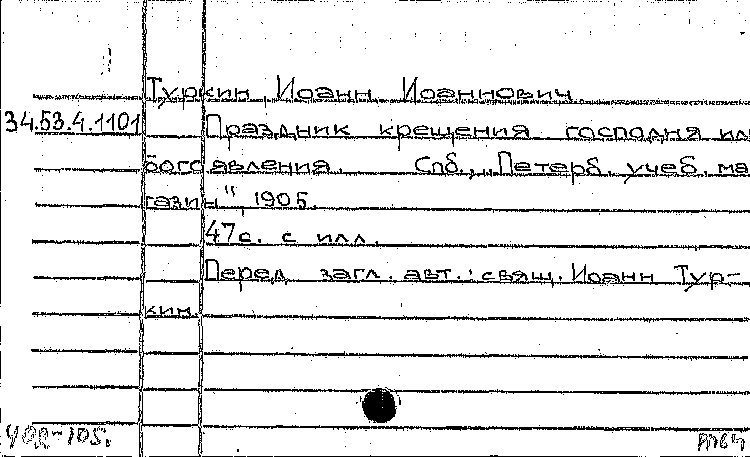 Туркин, Иоанн Иоаннович
34.53.4.1101 Праздник крещения господня ил
богоявления. Спб., „Петерб. учеб. ма
газин", 1905.
47с. с илл.
Перед загл. авт.: свящ. Иоанн Тур-
кин.